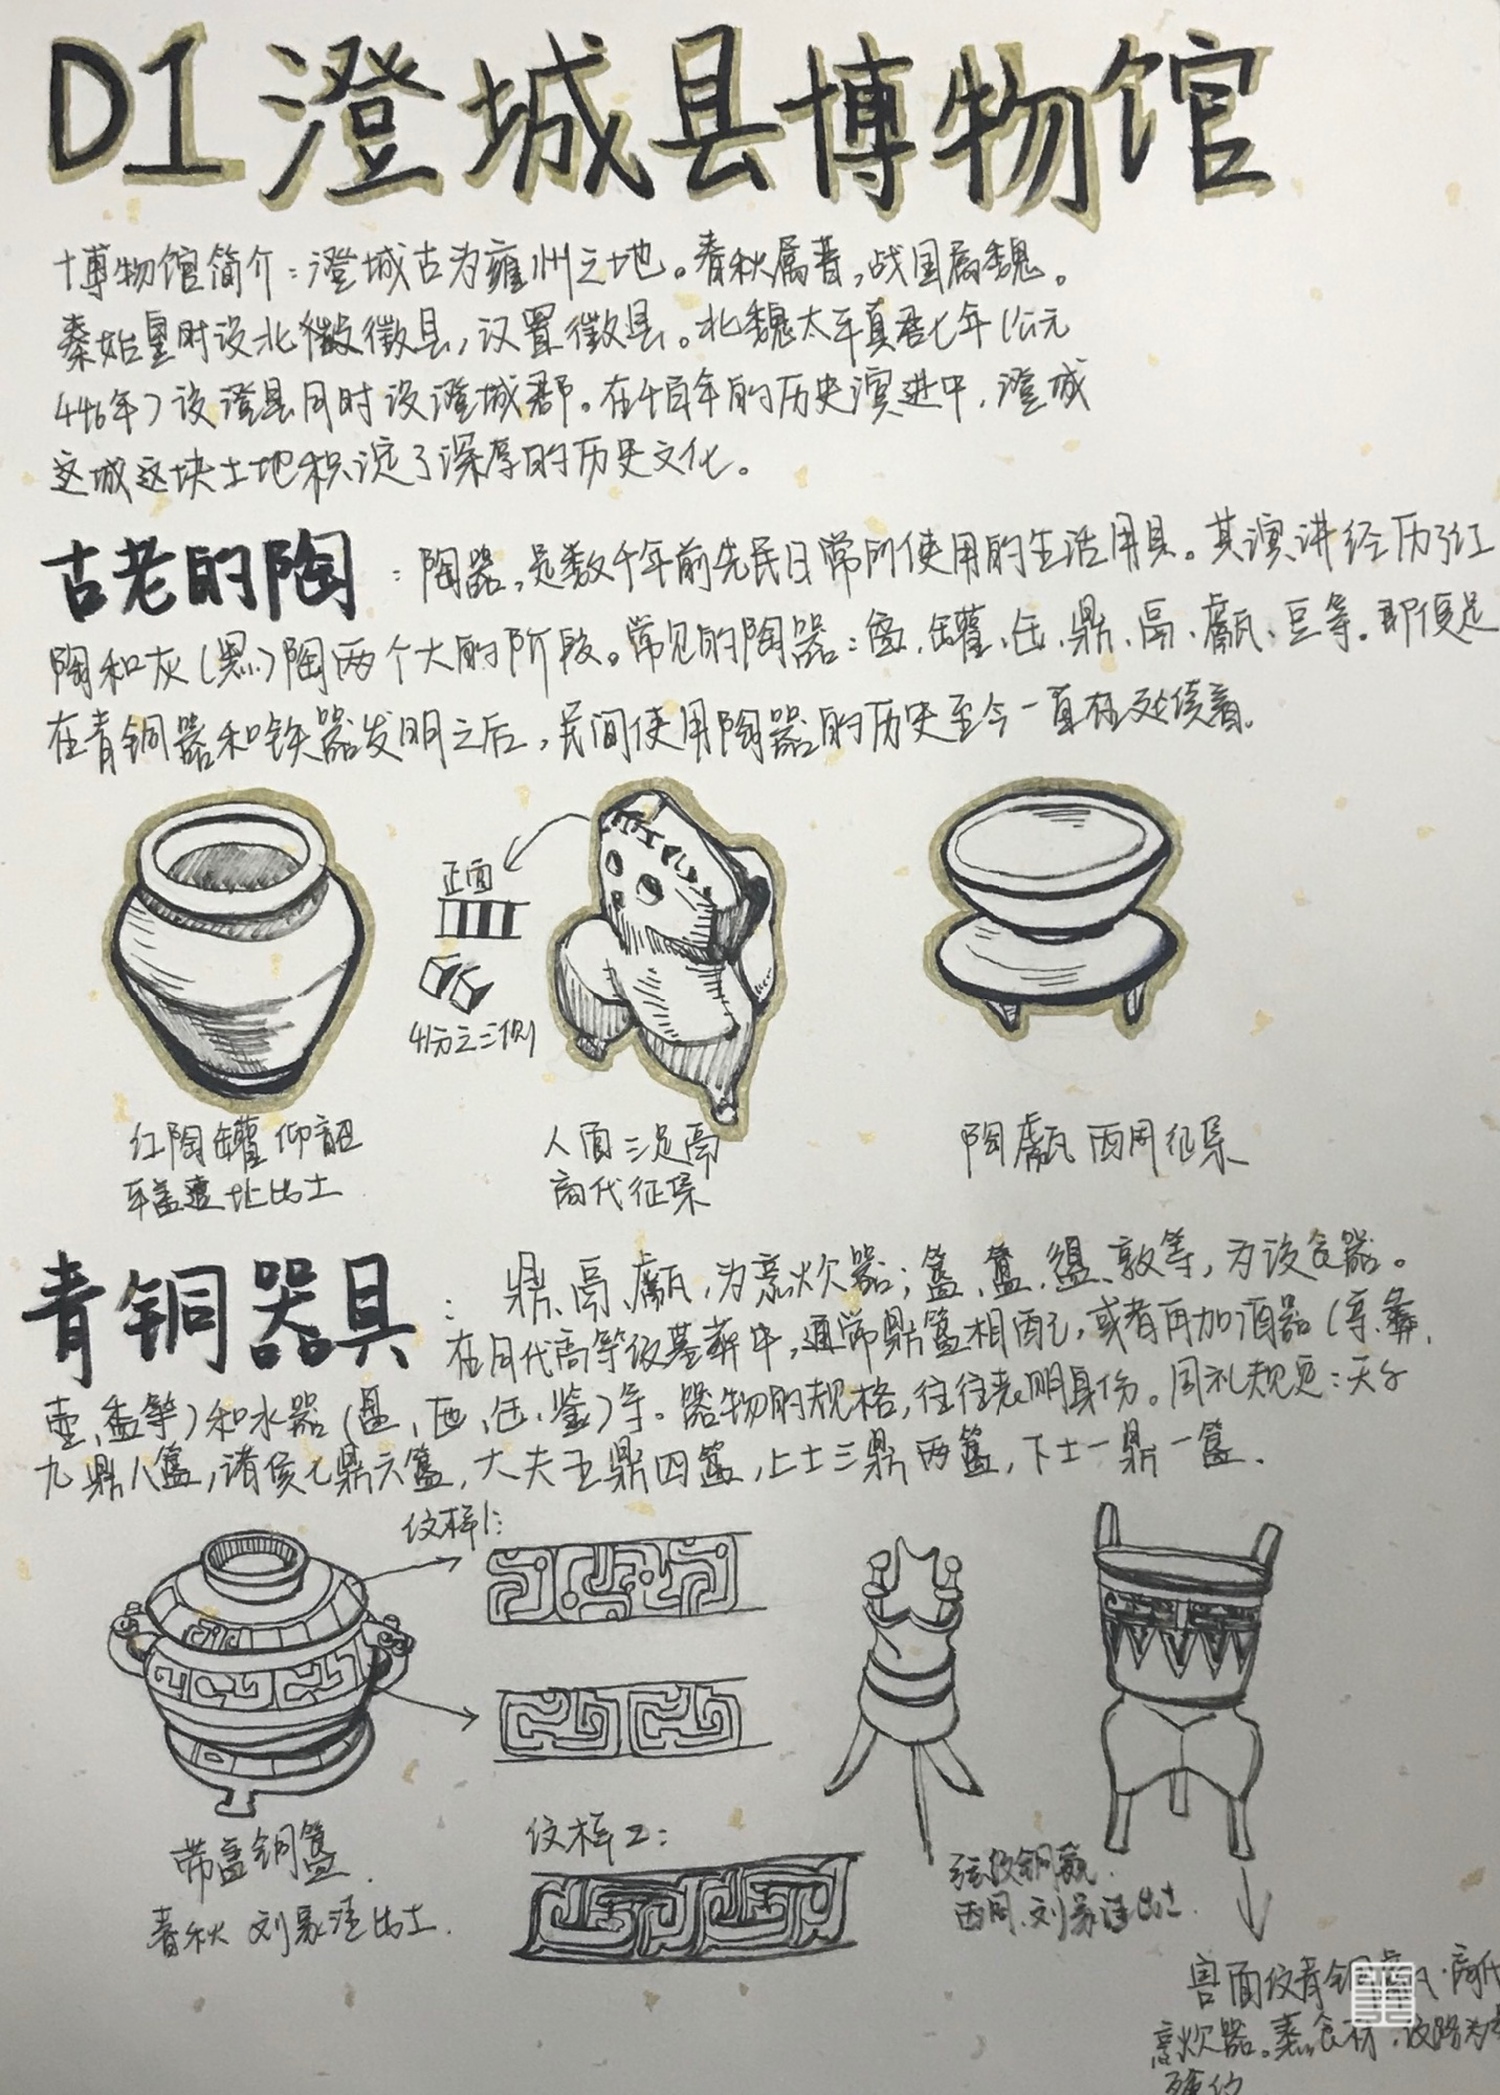 D1 澄城县博物馆
博物馆简介：澄城古为雍州之地。春秋属晋，战国属魏。
秦始皇时设北徵县，汉置徵县。北魏太平真君七年（公元
446年）设澄县同时设澄城郡。在千百年的历史演进中，澄城
这城这块土地积淀了深厚的历史文化。
古老的陶：陶器，是数千年前先民日常所使用的生活用具。其演讲经历了红
陶和灰（黑）陶两个大的阶段。常见的陶器：盉、罐、缶、鼎、鬲、甗、豆等。即便是
在青铜器和铁器发明之后，民间使用陶器的历史至今一直在延续着。
正面
4分之三侧
红陶罐 仰韶
遗址出土
人面三足鬲
商代征集
陶甗 西周征集
青铜器具：鼎、鬲、甗，为烹炊器；簋、敦等，为设食器。
在周代高等级墓葬中，通常鼎簋相配，或者再加酒器（彝、
壶、盉等）和水器（盘、匜、缶、鉴）等。器物的规格，往往表明身份。周礼规定：天子
九鼎八簋，诸侯七鼎六簋，大夫五鼎四簋，上士三鼎两簋，下士一鼎一簋．
纹样1：
纹样2：
带盖铜簋
春秋 刘家洼出土．
弦纹铜
西周．刘家洼出土．
面纹青铜甗·商代
烹炊器。蒸食材．纹路为